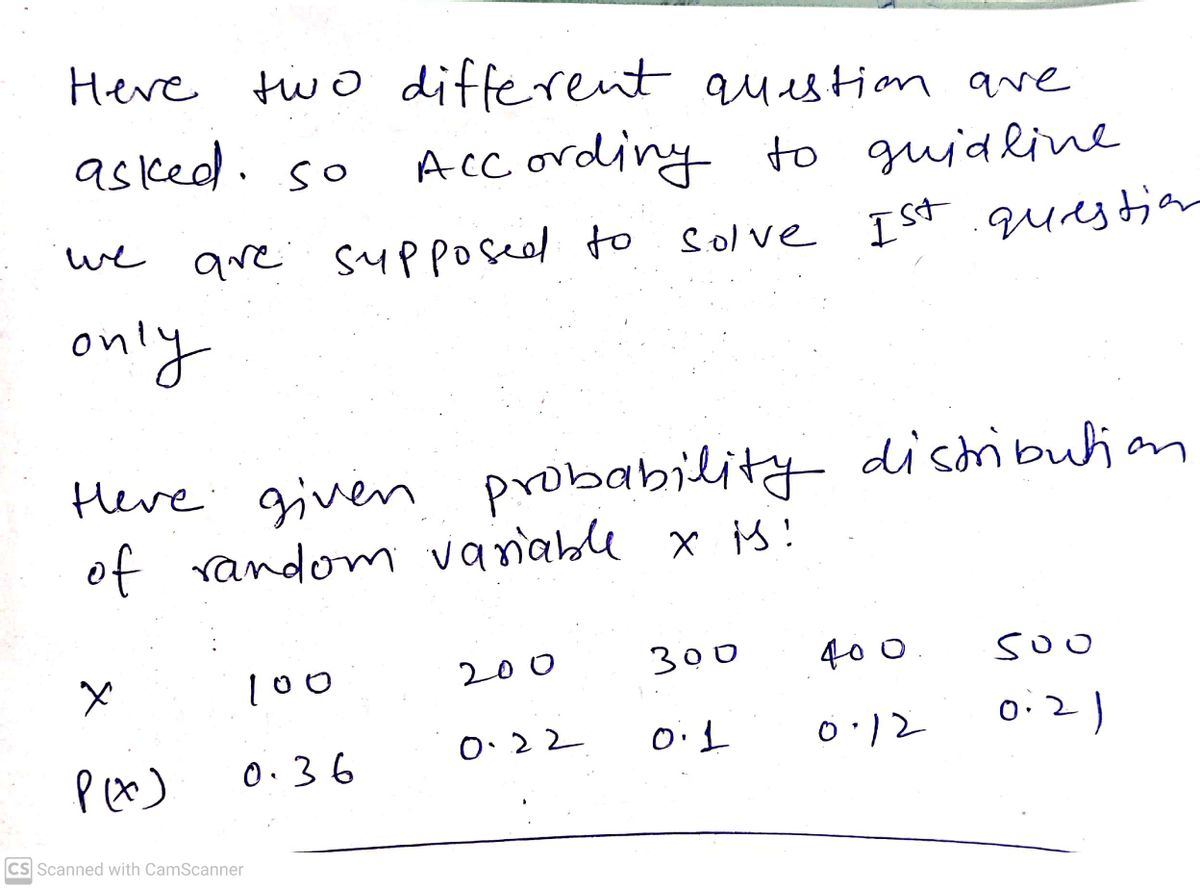 Here two different question are
asked. so According to guidline
we are supposed to solve Ist question
only
Here given probability distribution
of random variable x is:
X 100 200 300 400 500
P(x) 0.36 0.22 0.1 0.12 0.21
CS Scanned with CamScanner